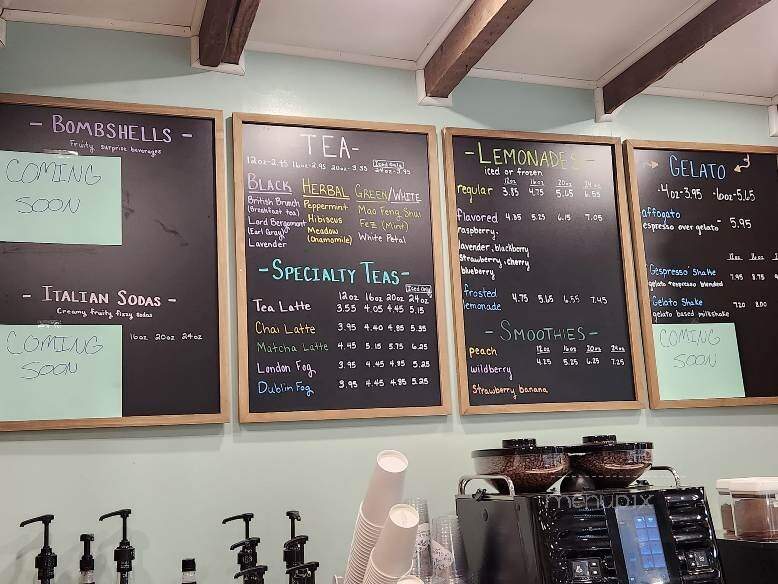 - BOMBSHELLS -
Fruity, surprise beverages
COMING
SOON
- ITALIAN SODAS -
Creamy, fruity, fizzy sodas
16oz 20oz 24oz
COMING
SOON
TEA-
12oz-2.45 16oz-2.95 20oz-3.55 Iced Only 24oz-3.95
BLACK HERBAL GREEN/WHITE
British Brunch Peppermint Mao Feng Shui
(Breakfast tea) Hibiscus
Lord Bergamont Meadow (Mint)
(Earl Gray) (Chamomile) White Petal
Lavender
- SPECIALTY TEAS -
Iced Only
12oz 16oz 20oz 24oz
Tea Latte 3.55 4.05 4.45 5.15
Chai Latte 3.95 4.40 4.85 5.35
Matcha Latte 4.45 5.15 5.75 6.25
London Fog 3.95 4.45 4.95 5.25
Dublin Fog 3.95 4.45 4.95 5.25
- LEMONADES -
iced or frozen
12oz 16oz 20oz 24oz
regular 3.85 4.75 5.65 6.55
flavored 4.35 5.25 6.15 7.05
raspberry,
lavender, blackberry
strawberry, cherry
blueberry
frosted
lemonade 4.75 5.65 6.55 7.45
- SMOOTHIES -
12oz 16oz 20oz 24oz
peach 4.25 5.25 6.25 7.25
wildberry
Strawberry banana
GELATO
4oz-3.95 16oz-5.65
affogato
espresso over gelato - 5.95
12oz 16oz
Gespresso Shake 7.95 8.75
gelato + espresso blended
Gelato Shake 7.20 8.00
gelato based milkshake
COMING
SOON
menupix